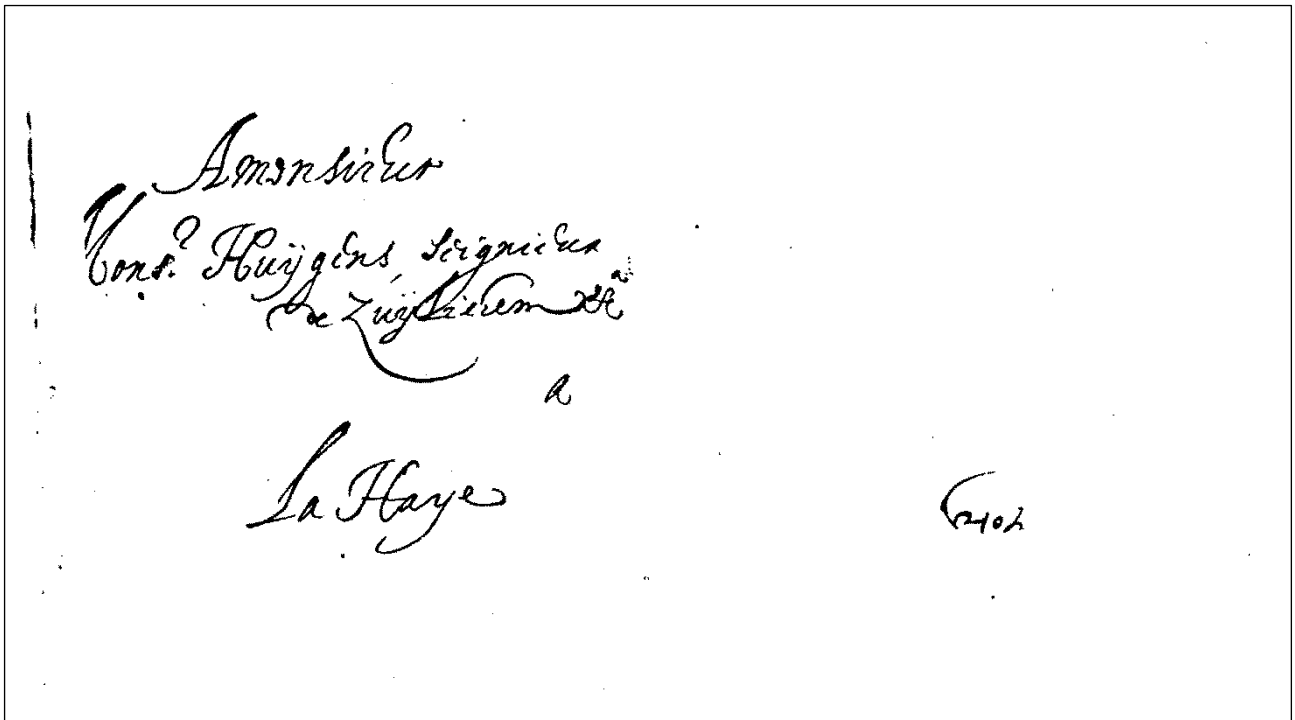 A monsieur
Const. Huÿgens, seignieur
de Zuÿlichem &ca
a
La Haye